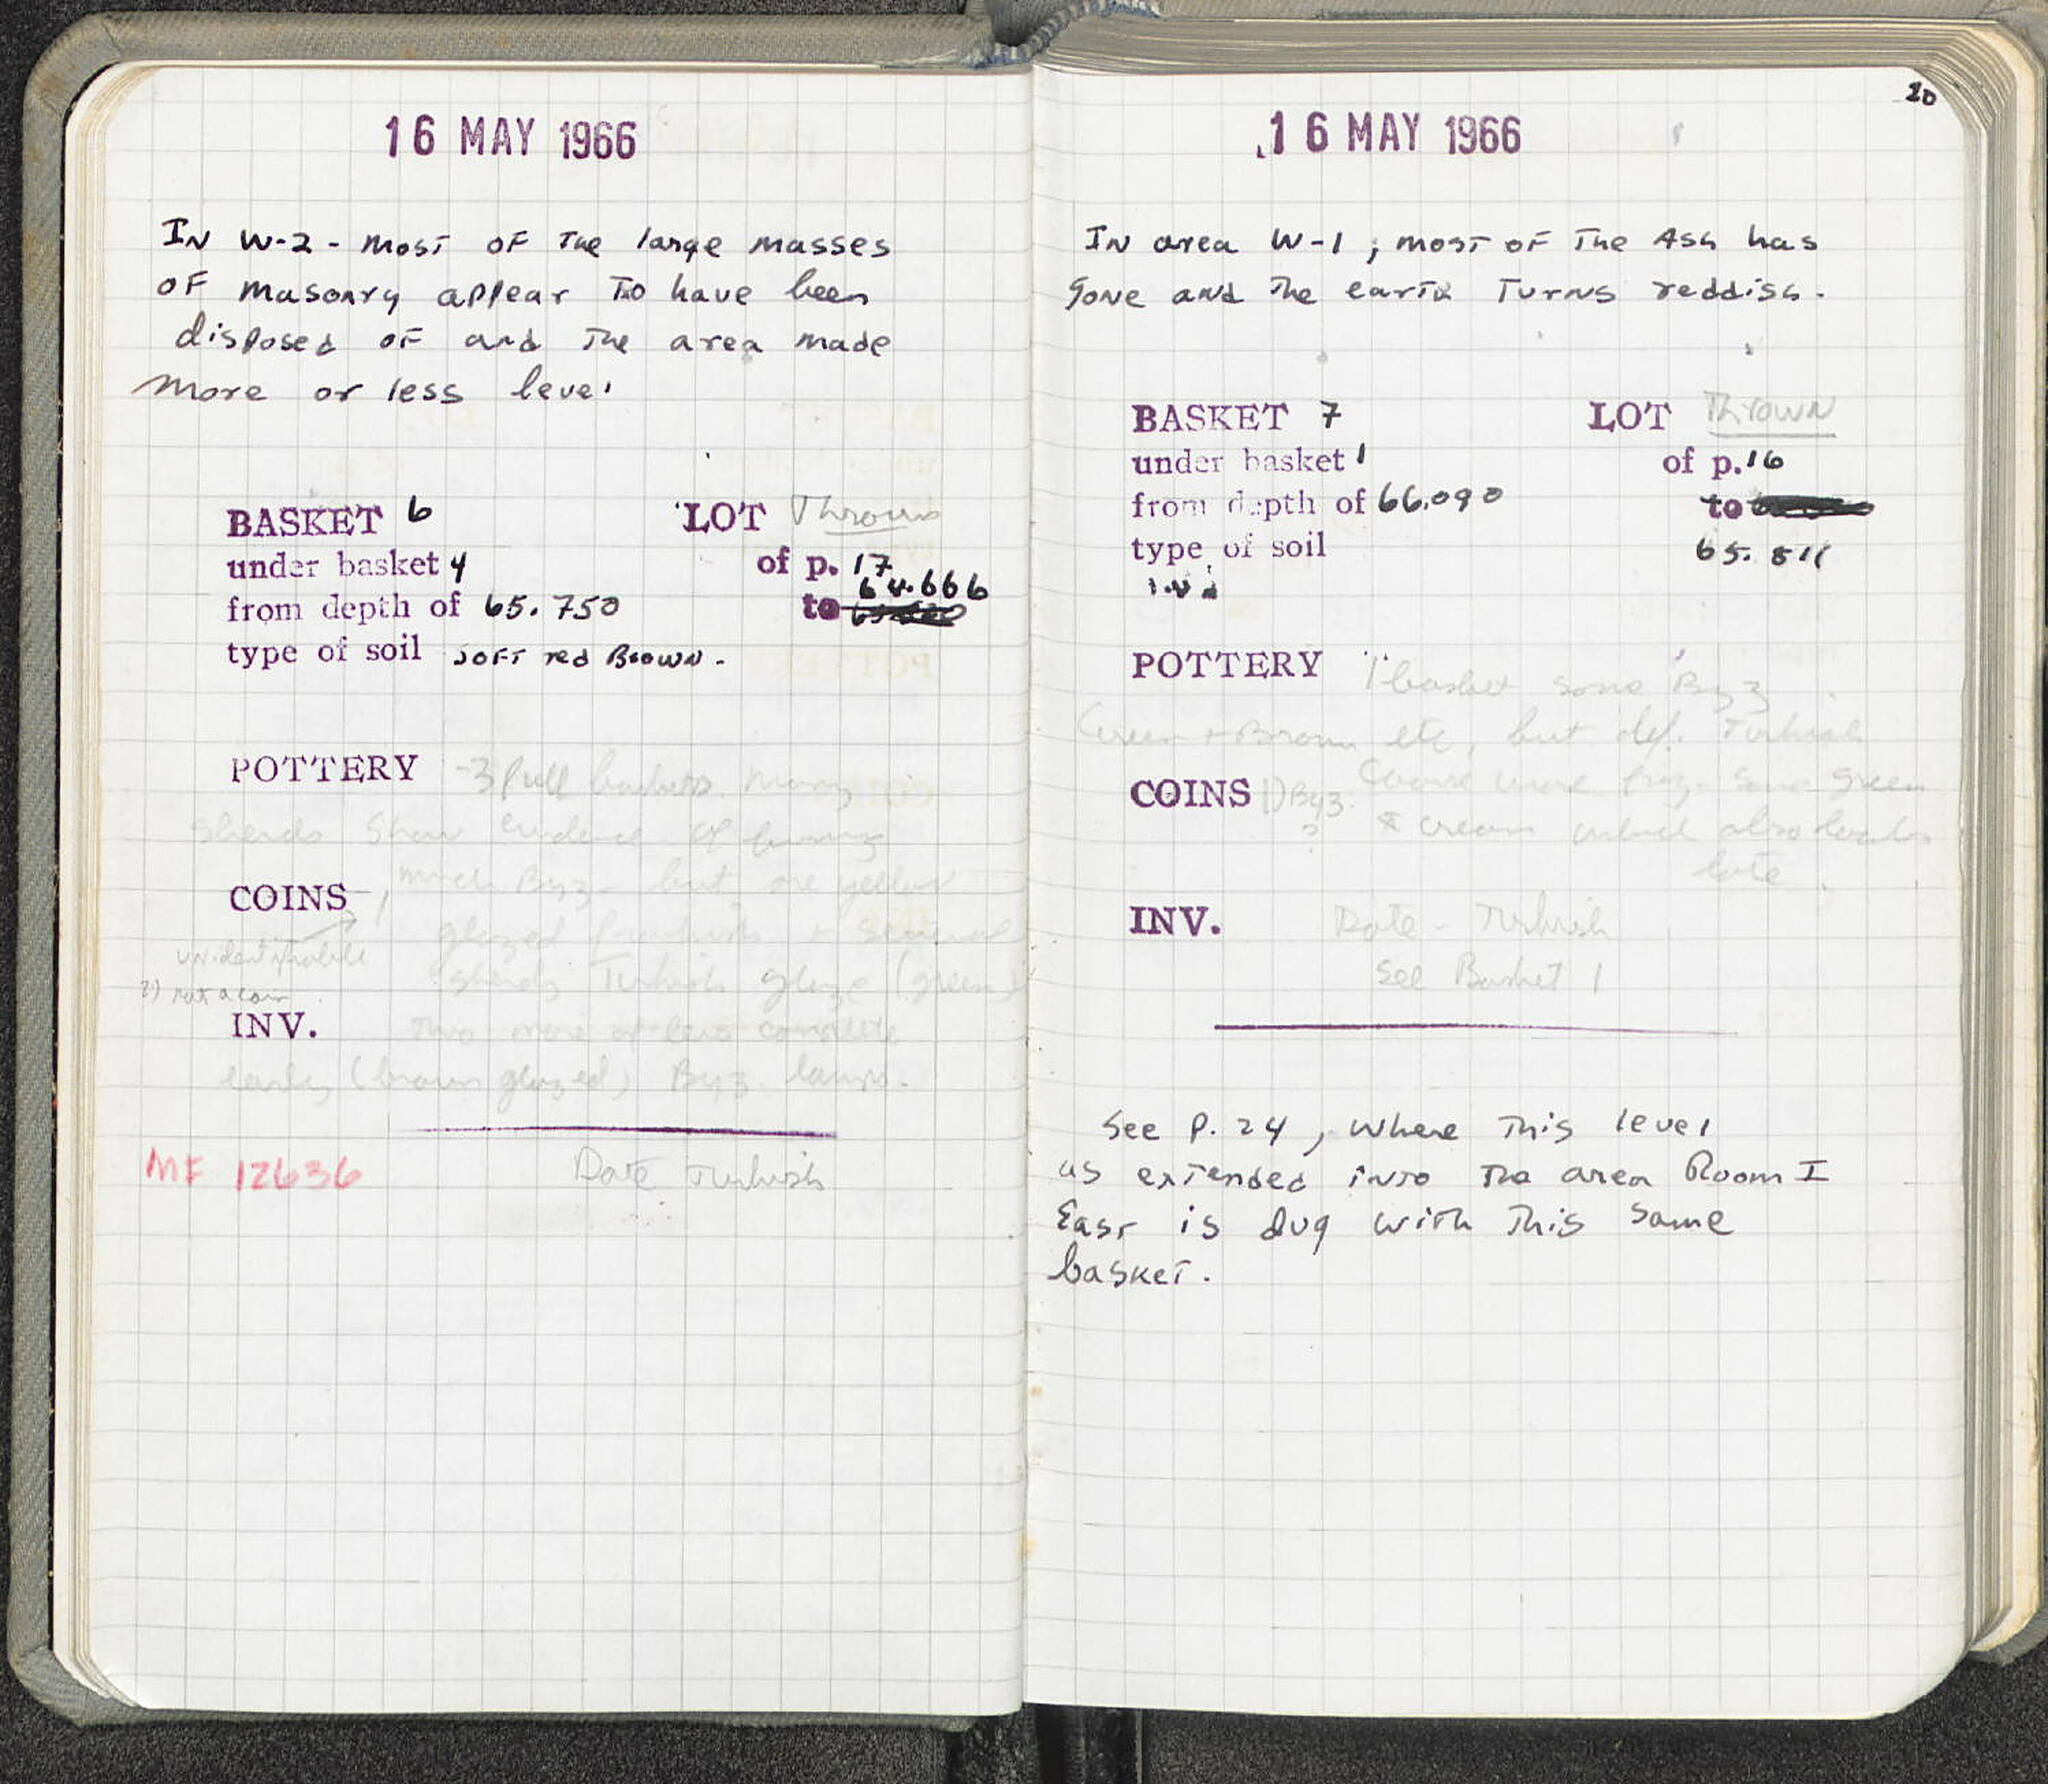 16 MAY 1966
In W-2 - most of the large masses
of masonry appear to have been
disposed of and the area made
more or less level
BASKET 6 LOT Thrown
under basket 4 of p. 17
from depth of 65.750 to 64.666
type of soil soft red Brown -
POTTERY - 3 full baskets. Many
sherds show evidence of burning
much Byz - but one yellow
COINS - 1
glazed Turkish + several
unidentifiable
sherds Turkish glaze (green)
2) not a coin
INV. Two more or less complete
early (brown glazed) Byz. lamps.
MF 12636 Date Turkish
20
16 MAY 1966
In area W-1, most of the Ash has
gone and the earth turns reddish.
BASKET 7 LOT Thrown
under basket 1 of p. 16
from depth of 66.090 to
type of soil 65.811
POTTERY 1 basket some Byz
Green + Brown etc, but def. Turkish
COINS 1) Byz. ? Coarse ware frag - some green
& cream which also looks
late.
INV. Date - Turkish
See Basket 1
See p. 24, where this level
as extended into the area Room I
East is dug with this same
basket.